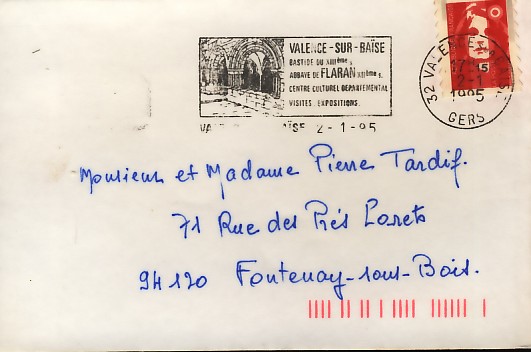 VALENCE-SUR-BAÏSE
BASTIDE DU XIIIème s
ABBAYE DE FLARAN XIIème s.
CENTRE CULTUREL DEPARTEMENTAL
VISITES. EXPOSITIONS.
32 VALENCE
2-1
1995
GERS
2-1-95
Monsieur et Madame Pierre Tardif.
71 Rue des Prés Lorets
94120 Fontenay-sous-Bois.